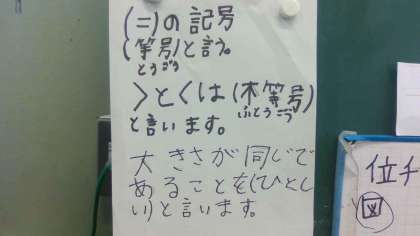 (=)の記号
(等号)と言う。
とうごう
>と<は(不等号)
ふとうごう
と言います。
大きさが同じで
あることを(ひとし
い)と言います。
位チ
図